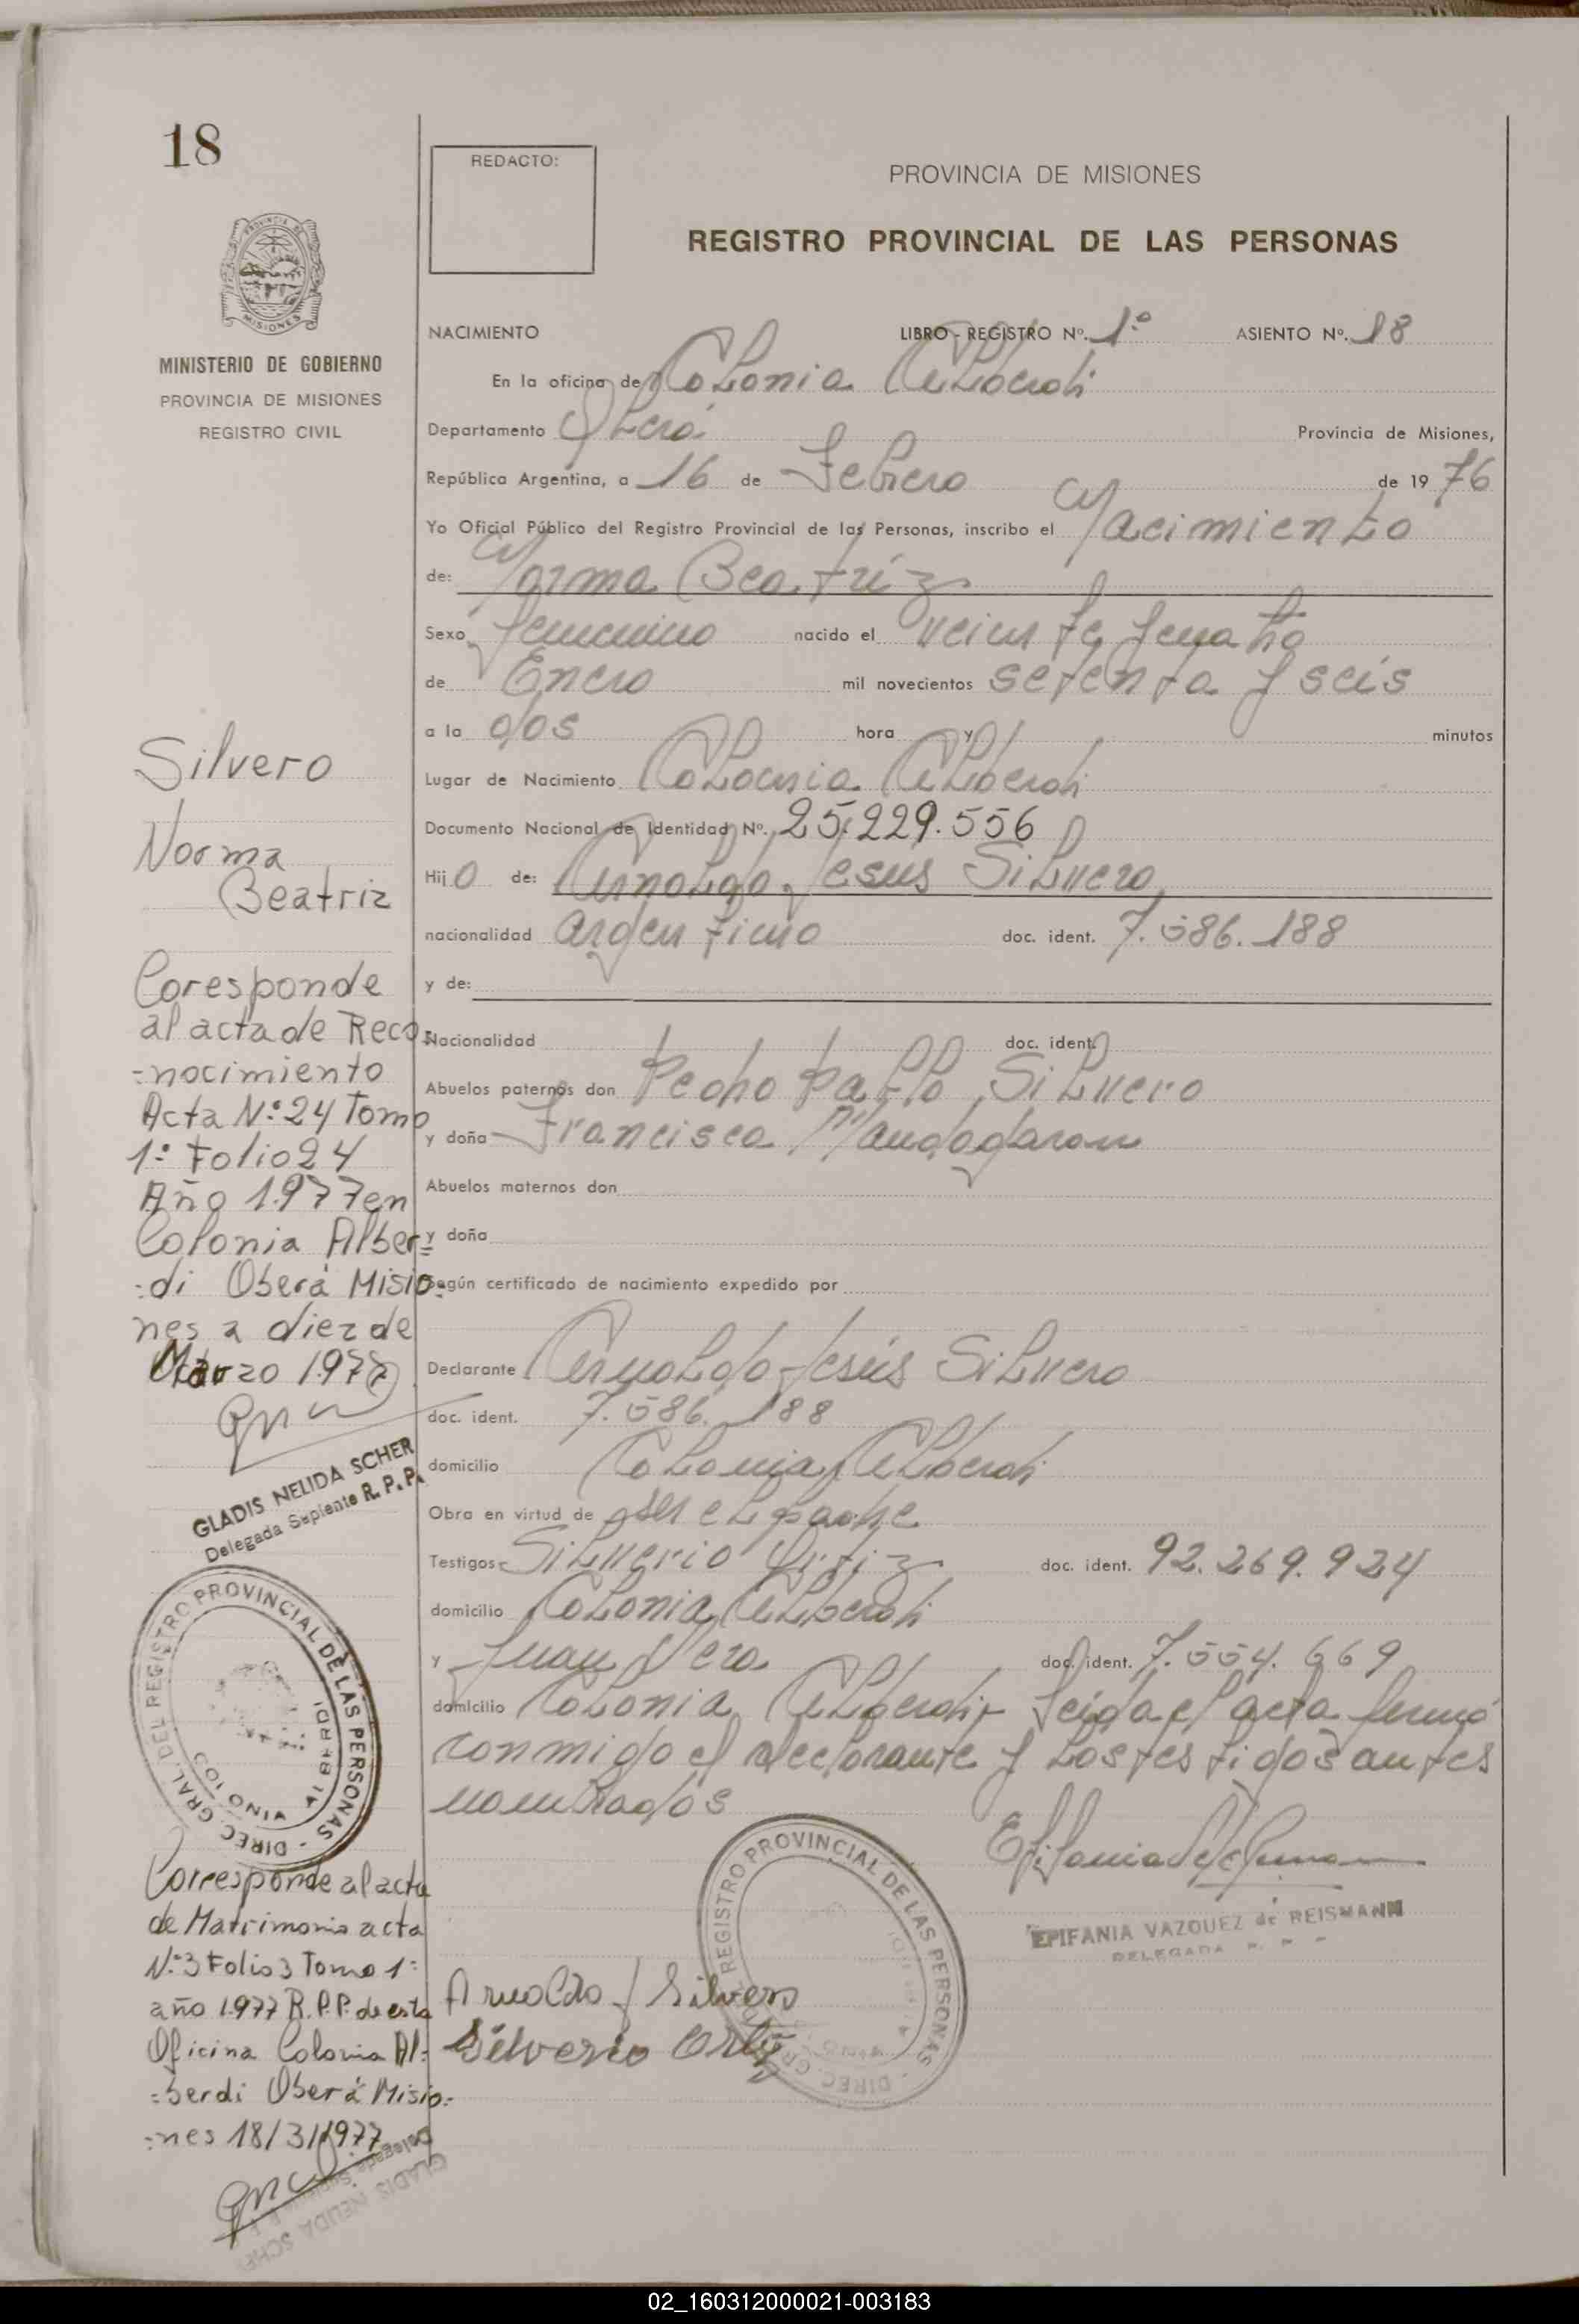 18
REDACTO:
PROVINCIA DE MISIONES
REGISTRO PROVINCIAL DE LAS PERSONAS
PROVINCIA DE
MISIONES
MINISTERIO DE GOBIERNO
PROVINCIA DE MISIONES
REGISTRO CIVIL
NACIMIENTO LIBRO - REGISTRO Nº. 1º ASIENTO Nº. 18
En la oficina de Colonia Alberdi
Departamento Oberá Provincia de Misiones,
República Argentina, a 16 de Febrero de 19 76
Yo Oficial Público del Registro Provincial de las Personas, inscribo el Nacimiento
de: Norma Beatríz
Sexo femenino nacido el veinte y cuatro
de Enero mil novecientos setenta y seis
a la dos hora y minutos
Lugar de Nacimiento Colonia Alberdi
Documento Nacional de Identidad Nº. 25.229.556
Hij o de: Arnoldo Jesus Silvero
nacionalidad argentino doc. ident. 7.586.188
y de:
Nacionalidad doc. ident.
Abuelos paternos don Pedro Pablo Silvero
y doña Francisca
Abuelos maternos don
y doña
Según certificado de nacimiento expedido por
Declarante Arnoldo Jesús Silvero
doc. ident. 7.586.188
domicilio Colonia Alberdi
Obra en virtud de ser el padre
Testigos Silverio Ortiz doc. ident. 92.269.924
domicilio Colonia Alberdi
y Juan Vera doc. ident. 7.554.669
domicilio Colonia Alberdi, leida el acta firmó
conmigo el declarante y los testigos antes
nombrados
EPIFANIA VAZQUEZ de REISMANN
DELEGADA
REGISTRO PROVINCIAL DE LAS PERSONAS
Arnoldo J Silvero
Silverio Ortiz
Silvero
Norma
Beatriz
Coresponde
al acta de Reco
-nocimiento
Acta Nº 24 Tomo
1º Folio 24
Año 1.977 en
Colonia Alber=
-di Oberá Misio=
nes a diez de
Marzo 1.977
GLADIS NELIDA SCHER
Delegada Suplente R. P. P.
DIREC. GRAL. DEL REGISTRO PROVINCIAL DE LAS PERSONAS
COLONIA ALBERDI
Corresponde al acta
de Matrimonio acta
Nº 3 Folio 3 Tomo 1º
año 1.977 R.P.P. de esta
Oficina Colonia Al=
=berdi Oberá Misio=
=nes 18/3/1977
GLADIS NELIDA SCHER
02_160312000021-003183